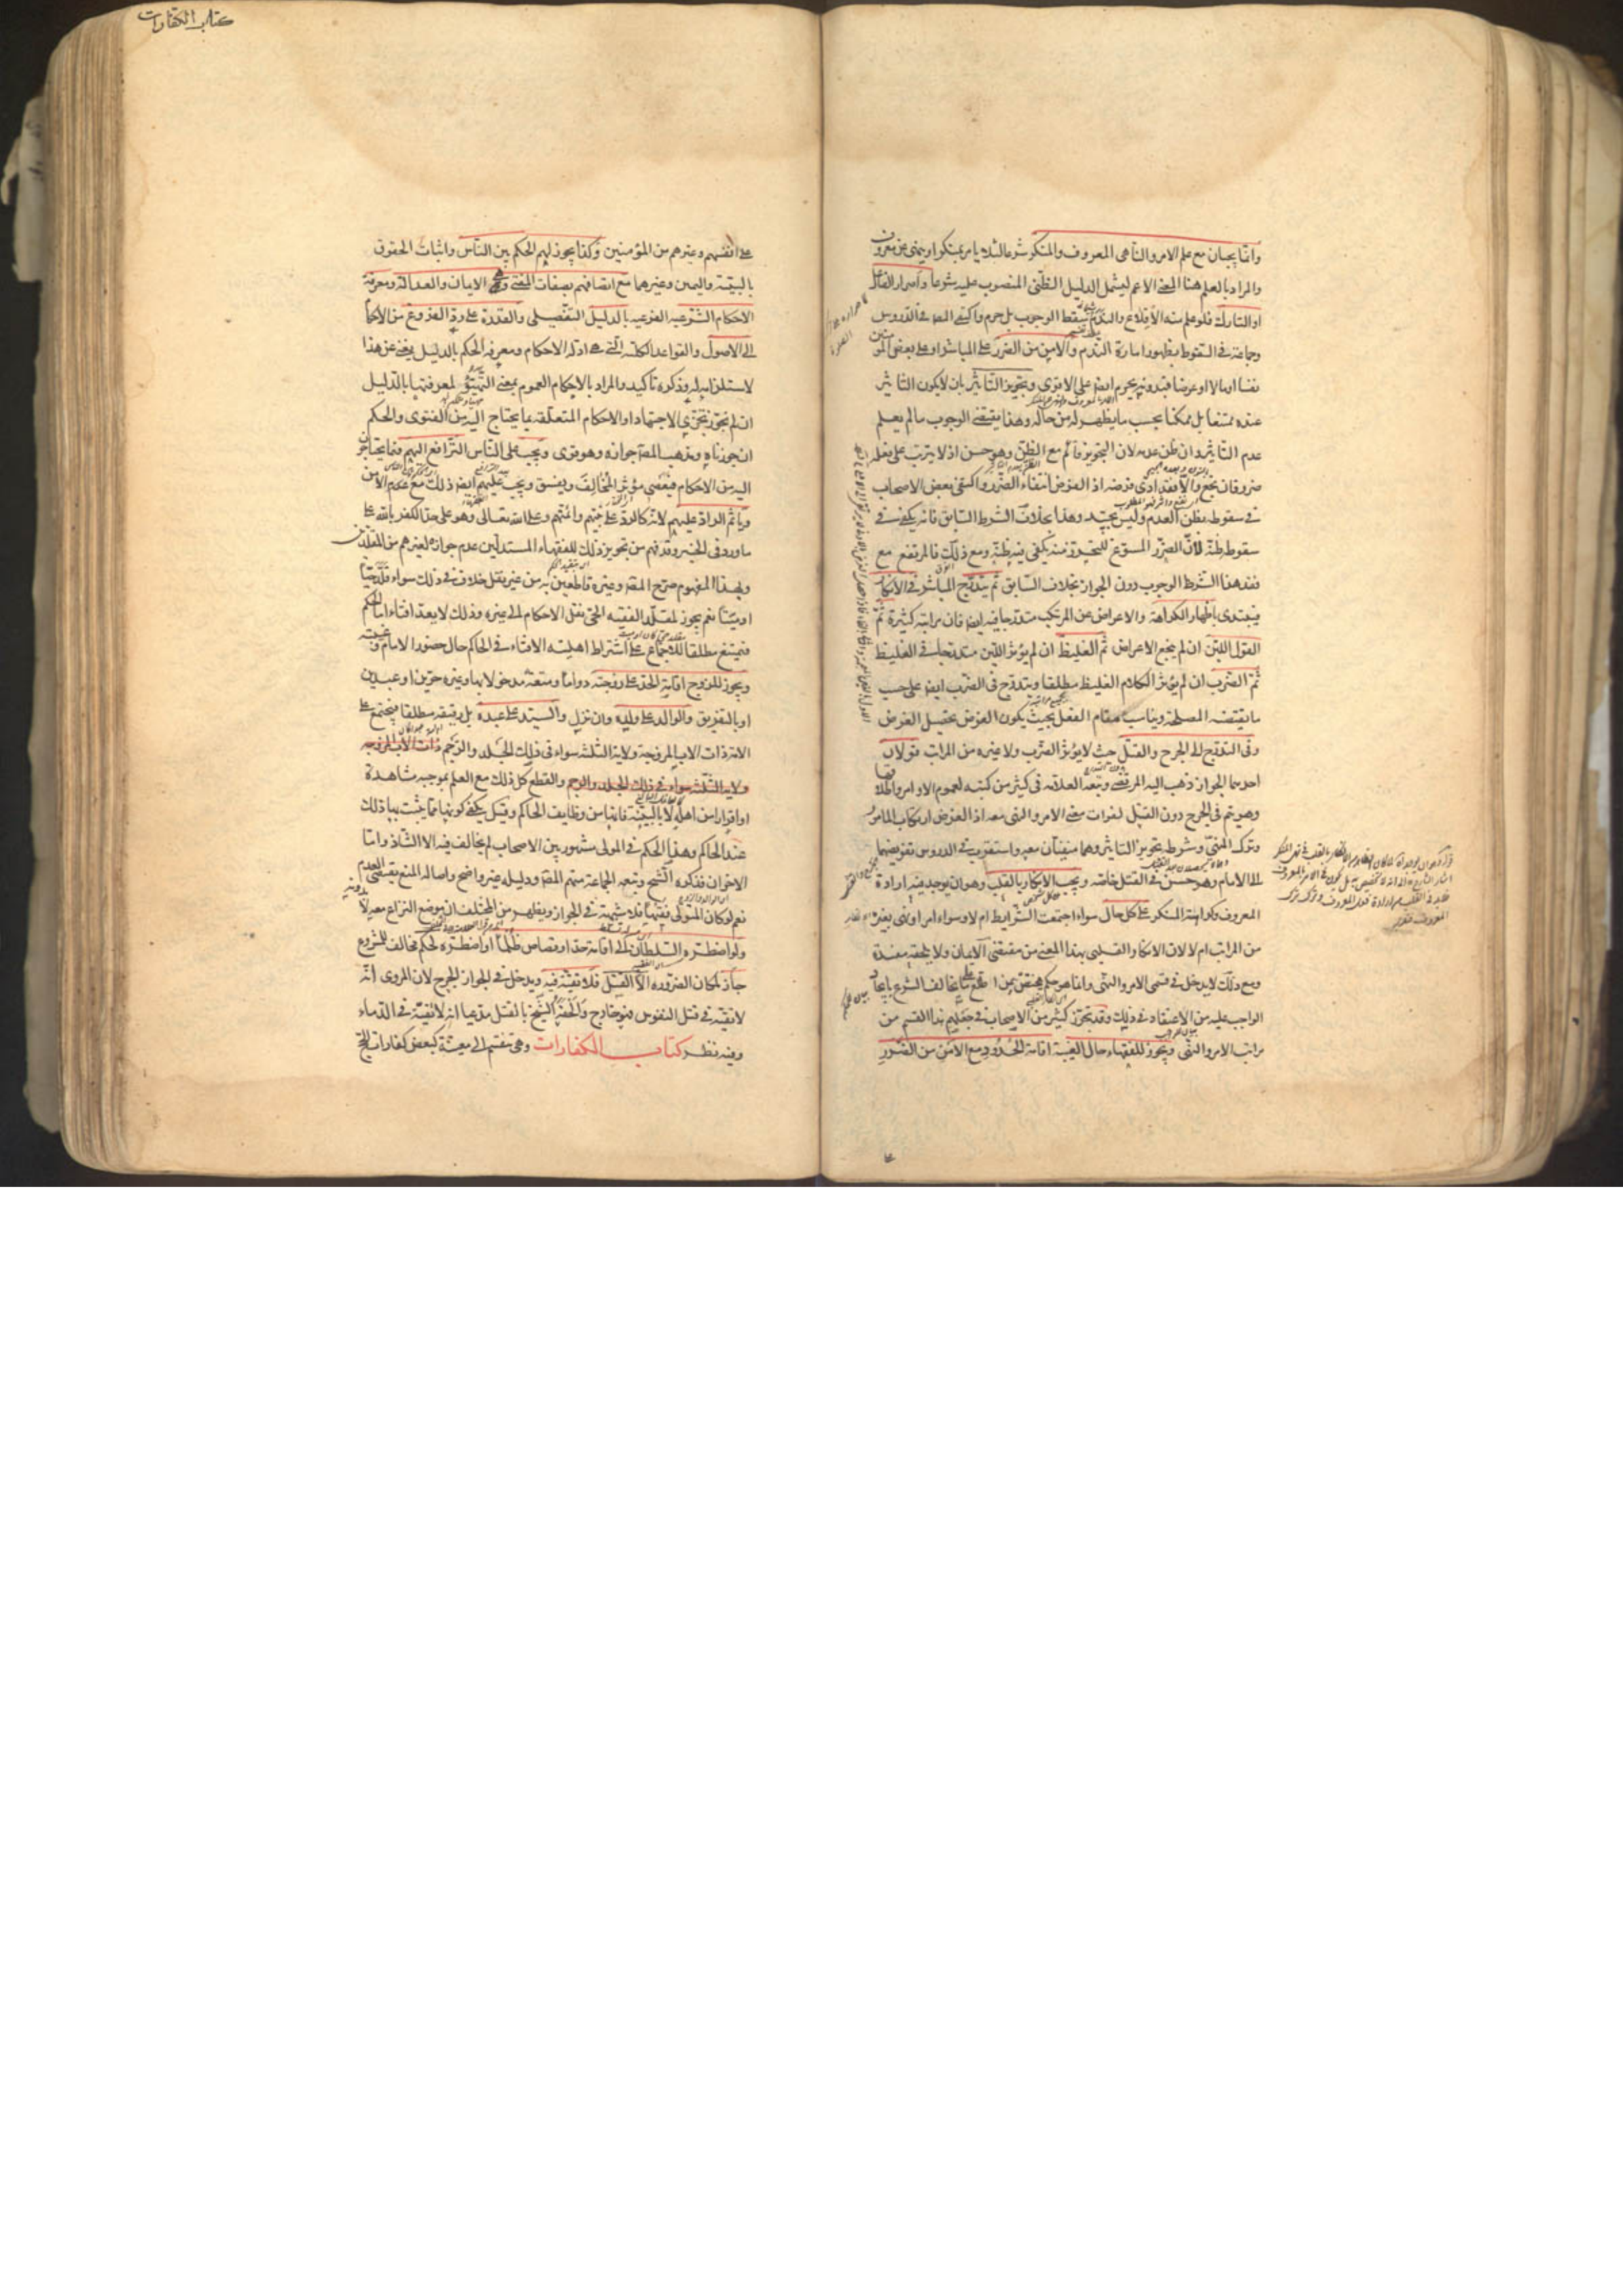 وانما يجبان مع علم الامر والناهى المعروف والمنكر شرعا لئلا يامر بمنكر او ينهى عن معروف
والمراد بالعلم هنا المعنى الاعم ليشمل الدليل الظنى المنصوب عليه شرعا واصرار الفاعل
او التارك فلو علم منه الاقلاع والندم سقط الوجوب بل حرم واكتفى المص فى الدروس
وجماعة فى السقوط بظهور امارة الندم والامن من الضرر على المباشر او على بعض المؤمنين
نفسا او مالا او عرضا فبدونه يحرم ايضا على الاقوى وتجويز التاثير بان لا يكون التاثير
عنده ممتنعا بل ممكنا بحسب ما يظهر له من حاله وهذا يقتضى الوجوب ما لم يعلم
عدم التاثير وان ظن عدمه لان التجويز قائم مع الظن وهو حسن اذ لا يترتب على فعله
ضرر فان نجع والا فقد ادى فرضه اذ الفرض انتفاء الضرر واكتفى بعض الاصحاب
فى سقوطه بظن العدم وليس بجيد وهذا بخلاف الشرط السابق فانه يكفى فى
سقوطه ظنه لان الضرر المسوغ للتحرز منه يكفى فيه ظنه ومع ذلك فالمرتفع مع
فقد هذا الشرط الوجوب دون الجواز بخلاف السابق ثم يتدرج المباشر فى الانكار
فيبتدى باظهار الكراهة والاعراض عن المرتكب متدرجا فيه ايضا فان مراتبه كثيرة ثم
القول اللين ان لم ينجع الاعراض ثم الغليظ ان لم يؤثر اللين متدرجا فى الغليظ
ثم الضرب ان لم يؤثر الكلام الغليظ مطلقا ويتدرج فى الضرب ايضا على حسب
ما يقتضيه المصلحة ويناسب مقام الفعل بحيث يكون الغرض تحصيل الغرض
وفى التدرج الى الجرح والقتل حيث لا يؤثر الضرب ولا غيره من المراتب قولان
احدهما الجواز ذهب اليه المرتضى وتبعه العلامة فى كثير من كتبه لعموم الاوامر واطلاقها
وهو يتم فى الجرح دون القتل لفوات معنى الامر والنهى معه اذ الغرض ارتكاب المامور
وترك المنهى وشرطه تجويز التاثير وهما منفيان معه واستقرب فى الدروس تفويضهما
الى الامام وهو حسن فى القتل خاصة ويجب الانكار بالقلب وهو ان يوجد فيه ارادة
المعروف وكراهته المنكر على كل حال سواء اجتمعت الشرايط ام لا وسواء امر او نهى بغيره
من المراتب ام لا لان الانكار القلبى بهذا المعنى من مقتضى الايمان ولا يلحقه مفسدة
ومع ذلك لا يدخل فى قسمى الامر والنهى وانما هو حكم يختص بمن اطلع على ما يخالف الشرع بايجاد
الواجب عليه من الاعتقاد فى ذلك وقد تجوز كثير من الاصحاب فى جعلهم هذا القسم من
مراتب الامر والنهى ويجوز للفقهاء حال الغيبة اقامة الحدود مع الامن من الضرر
كتاب الكفارات
على انفسهم وغيرهم من المؤمنين وكذا يجوز لهم الحكم بين الناس واثبات الحقوق
بالبينة واليمين وغيرهما مع اتصافهم بصفات المفتى وهى الايمان والعدالة ومعرفة
الاحكام الشرعية الفرعية بالدليل التفصيلى والقدرة على رد الفروع من الاحكام
الى الاصول والقواعد الكلية التى هى ادلة الاحكام ومعرفة الحكم بالدليل يغنى عن هذا
لاستلزامه له وذكره تاكيد والمراد بالاحكام العموم بمعنى التهيؤ لمعرفتها بالدليل
ان لم نجوز تجزى الاجتهاد او الاحكام المتعلقة بما يحتاج اليه من الفتوى والحكم
ان جوزناه ومذهب المص جوازه وهو قوى ويجب على الناس الترافع اليهم فيما يحتاجون
اليه من الاحكام فيعصى مؤثر المخالف ويفسق ويجب عليهم ايضا ذلك مع الامن
وياثم الراد عليهم لانه كالراد على نبيهم وائمتهم وعلى الله تعالى وهو على حد الكفر بالله على
ما ورد فى الخبر وقد فهم من تجويز ذلك للفقهاء المستدلين عدم جوازه لغيرهم من المقلدين
وبهذا المفهوم صرح المص وغيره قاطعين به من غير نقل خلاف فى ذلك سواء قلد حيا
او ميتا نعم يجوز لمقلد الفقيه الحى نقل الاحكام الى غيره وذلك لا يعد افتاء اما الحكم
فيمتنع مطلقا للاجماع على اشتراط اهلية الافتاء فى الحاكم حال حضور الامام وغيبته
ويجوز للزوج اقامة الحد على زوجته دواما ومتعة مدخولا بها وغيره حرين او عبدين
او بالتفريق والوالد على ولده وان نزل والسيد على عبده بل رقيقه مطلقا فيجتمع على
الامة ذات الاب المزوجة ولاية الثلثة سواء فى ذلك الجلد والرجم ذات الاب المزوجة
ولاية الثلثة سواء فى ذلك الجلد والرجم والقطع كل ذلك مع العلم بموجبه مشاهدة
او اقرار من اهله لا بالبينة فانها من وظايف الحاكم وقيل يكفى كونها مما يثبت بها ذلك
عند الحاكم وهذا الحكم فى المولى مشهور بين الاصحاب لم يخالف فيه الا الشاذ واما
الاخران فذكره الشيخ وتبعه الجماعة منهم المص ودليله غير واضح واصالة المنع يقتضى العدم
نعم لو كان المتولى فقيها فلا شبهة فى الجواز ويظهر من المختلف ان موضع النزاع معه لا بدونه
ولو اضطره السلطان الى اقامة حد او قصاص ظلما او اضطره لحكم مخالف للمشروع
جاز لمكان الضرورة الا القتل فلا تقية فيه ويدخل فى الجواز الجرح لان المروى انه
لا تقية فى قتل النفوس فهو خارج والحقه الشيخ بالقتل مدعيا انه لا تقية فى الدماء
وفيه نظر كتاب الكفارات وهى تنقسم الى معينة كبعض كفارات الحج